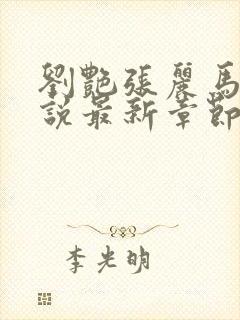 劉艷張麗馬
說最新章節
李光明